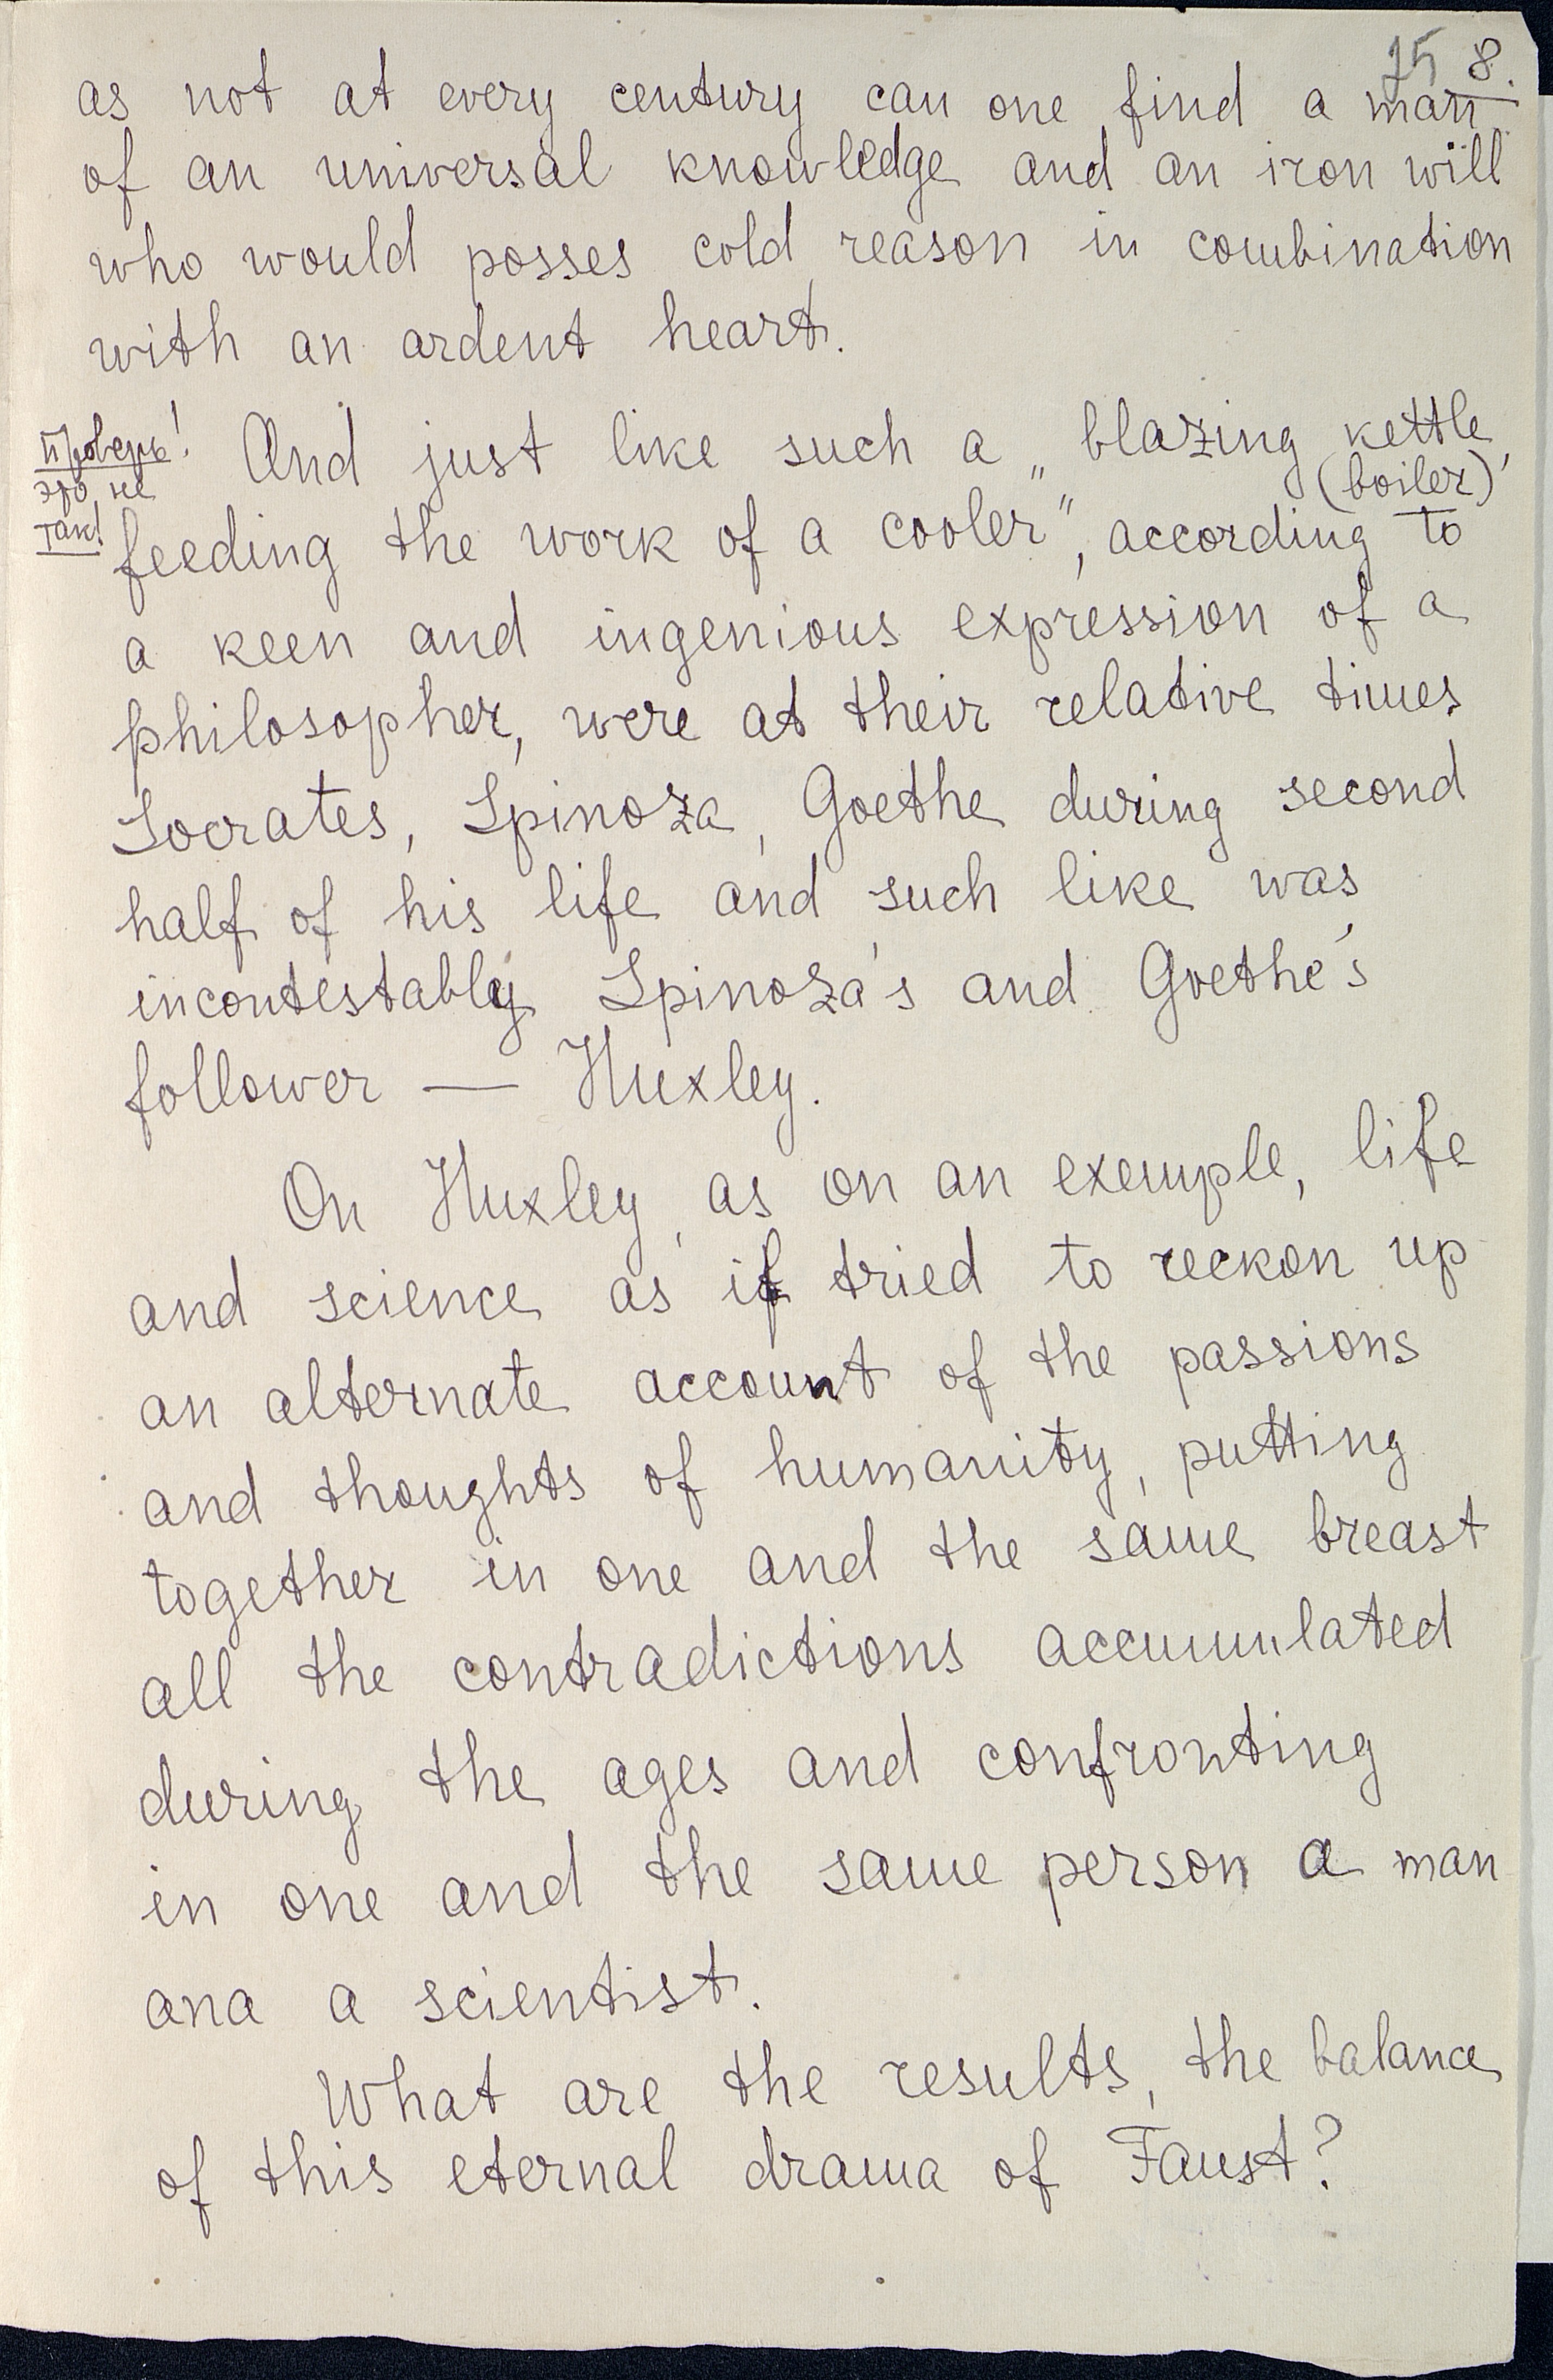 75 8.
as not at every century can one find a man
of an universal knowledge and an iron will
who would posses cold reason in combination
with an ardent heart.
Проверь!
это не
так!
And just like such a „ blazing kettle,
(boiler)
feeding the work of a cooler", according to
a keen and ingenious expression of a
philosopher, were at their relative times
Socrates, Spinoza, Goethe during second
half of his life and such like was,
incontestably Spinoza's and Goethe's
follower — Huxley.
On Huxley, as on an exemple, life
and science as if tried to reckon up
an alternate account of the passions
and thoughts of humanity, putting
together in one and the same breast
all the contradictions accumulated
during the ages and confronting
in one and the same person a man
ana a scientist.
What are the results, the balance
of this eternal drama of Faust?